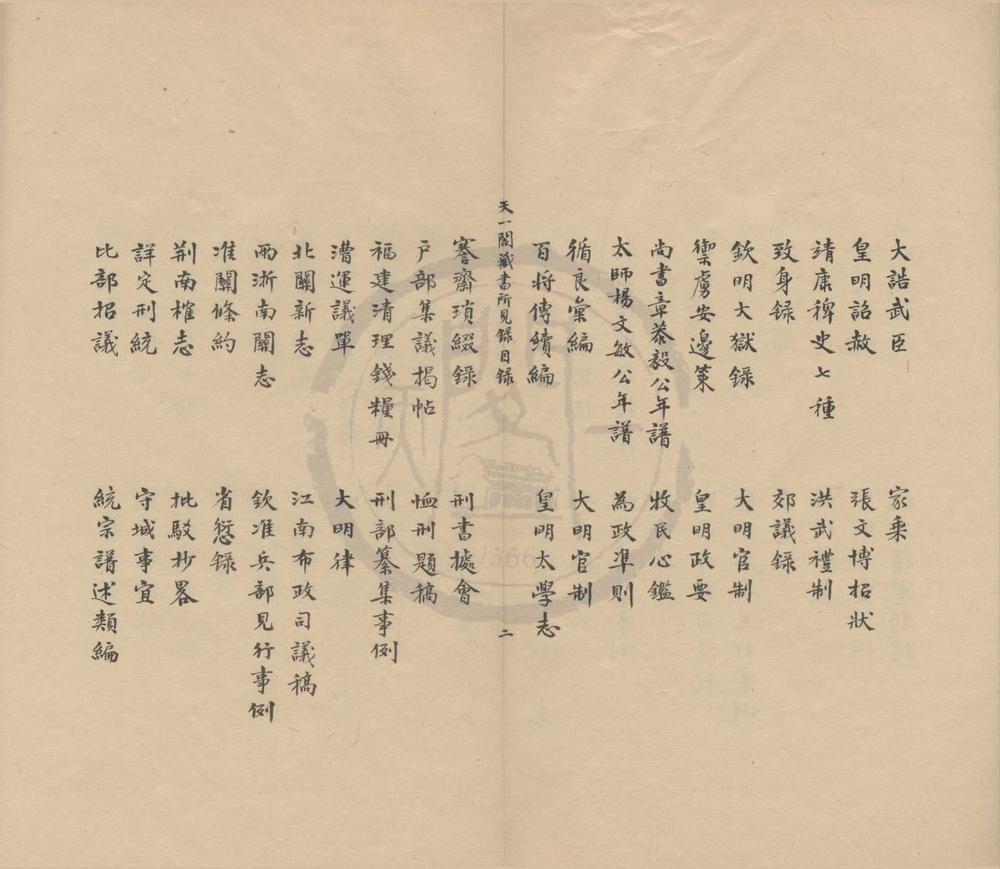 大誥武臣 家乘
皇明詔赦 張文博招狀
靖康稗史七種 洪武禮制
致身録 郊議録
欽明大獄録 大明官制
禦虜安邊策 皇明政要
尚書章恭毅公年譜 牧民心鑑
太師楊文敏公年譜 為政準則
循良彙編 大明官制
百将傳續編 皇明太學志
天一閣藏書所見録目録 二
謇齋瑣綴録 刑書據會
戶部集議揭帖 恤刑題稿
福建清理錢糧冊 刑部纂集事例
漕運議單 大明律
北關新志 江南布政司議稿
兩浙南關志 欽准兵部見行事例
淮關條約 省愆録
荆南榷志 批駁抄畧
詳定刑統 守城事宜
比部招議 統宗譜述類編
1566